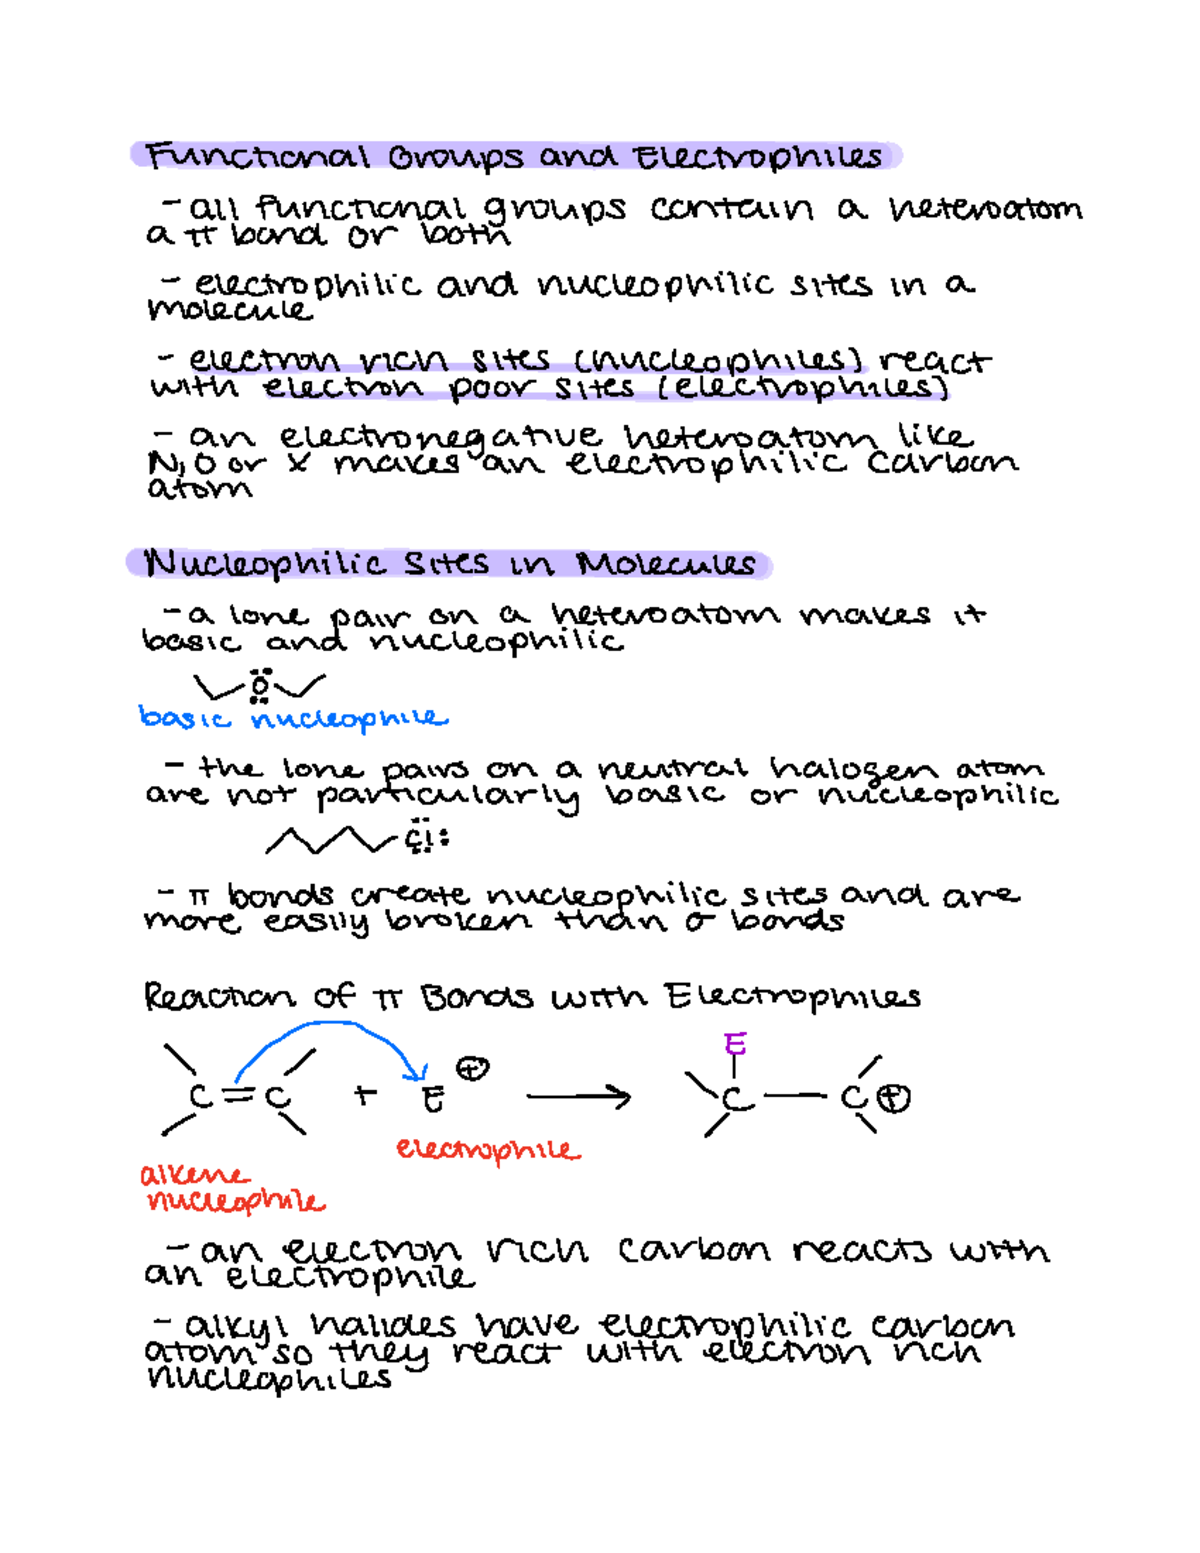 Functional Groups and Electrophiles
- all functional groups contain a heteroatom
a π bond or both
- electrophilic and nucleophilic sites in a
molecule
- electron rich sites (nucleophiles) react
with electron poor sites (electrophiles)
- an electronegative heteroatom like
N, O or X makes an electrophilic carbon
atom
Nucleophilic Sites in Molecules
- a lone pair on a heteroatom makes it
basic and nucleophilic
O
basic nucleophile
- the lone pairs on a neutral halogen atom
are not particularly basic or nucleophilic
Cl
- π bonds create nucleophilic sites and are
more easily broken than σ bonds
Reaction of π Bonds with Electrophiles
E
C=C + E⊕ → C — C⊕
electrophile
alkene
nucleophile
- an electron rich carbon reacts with
an electrophile
- alkyl halides have electrophilic carbon
atom so they react with electron rich
nucleophiles